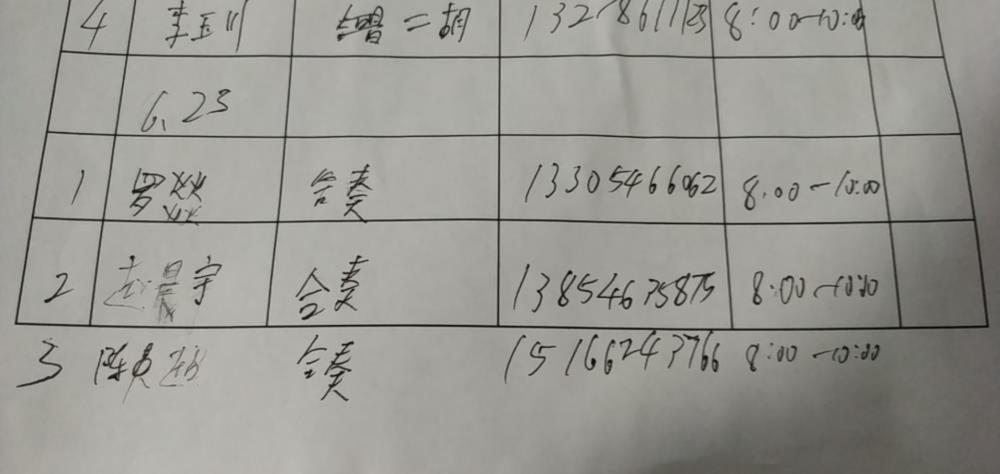 4 李玉川 二胡 8:00-10:00
6.23
1 罗 合奏 13305466062 8:00-10:00
2 赵晨宇 合奏 13854675875 8:00-10:00
3 陈 合奏 15166243766 8:00-10:00